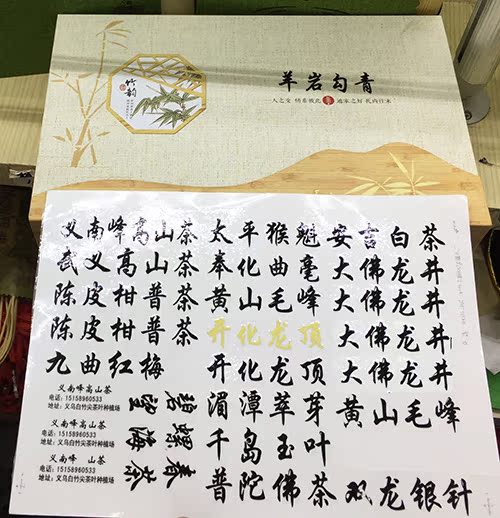 竹韵
羊岩勾青
人之交 情系彼此
通家之好 礼尚往来
义南峰高山茶 太平猴魁 安吉白茶
武义高山茶 奉化曲毫 大佛龙井
陈皮柑普茶 黄山毛峰 大佛龙井
陈皮柑普茶 开化龙顶 大佛龙井
九曲红梅 开化龙顶 大佛龙井
义南峰高山茶
电话：15158960533
地址：义乌白竹尖茶叶种植场
义南峰高山茶
电话：15158960533
地址：义乌白竹尖茶叶种植场
义南峰 山茶
电话：15158960533
地址：义乌白竹尖茶叶种植场
碧螺春
望海茶
湄潭萃芽 黄山毛峰
千岛玉叶
普陀佛茶 双龙银针